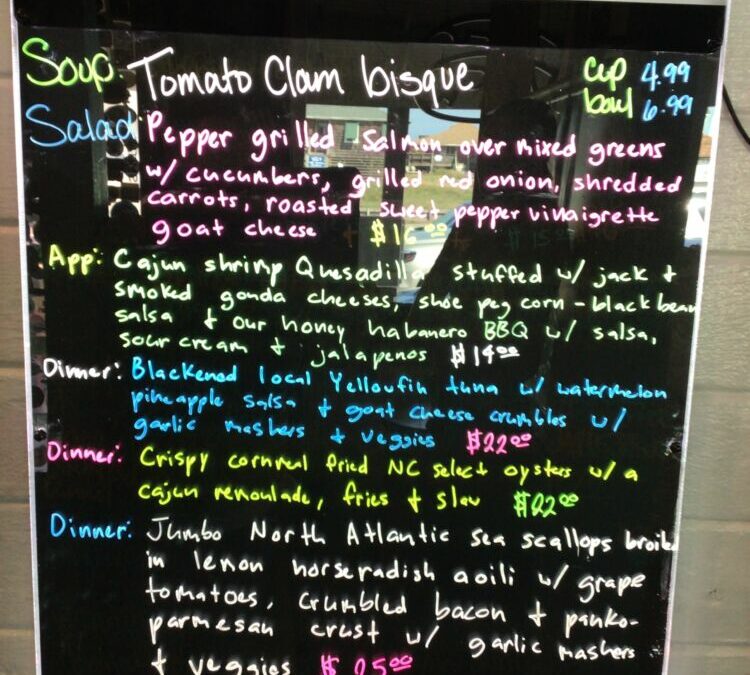 Soup: Tomato Clam bisque cup 4.99
bowl 6.99
Salad Pepper grilled salmon over mixed greens
w/ cucumbers, grilled red onion, shredded
carrots, roasted sweet pepper vinaigrette
goat cheese $16.00
App: Cajun shrimp Quesadilla stuffed w/ jack +
smoked gouda cheeses, shoe peg corn - black bean
salsa + our honey habanero BBQ w/ salsa,
sour cream + jalapenos $14.00
Dinner: Blackened local Yellowfin tuna w/ watermelon
pineapple salsa + goat cheese crumbles w/
garlic mashers + veggies $22.00
Dinner: Crispy cornmeal fried NC select oysters w/ a
cajun remoulade, fries + slaw $22.00
Dinner: Jumbo North Atlantic sea scallops broiled
in lemon horseradish aoili w/ grape
tomatoes, crumbled bacon + panko-
parmesan crust w/ garlic mashers
+ veggies $25.00